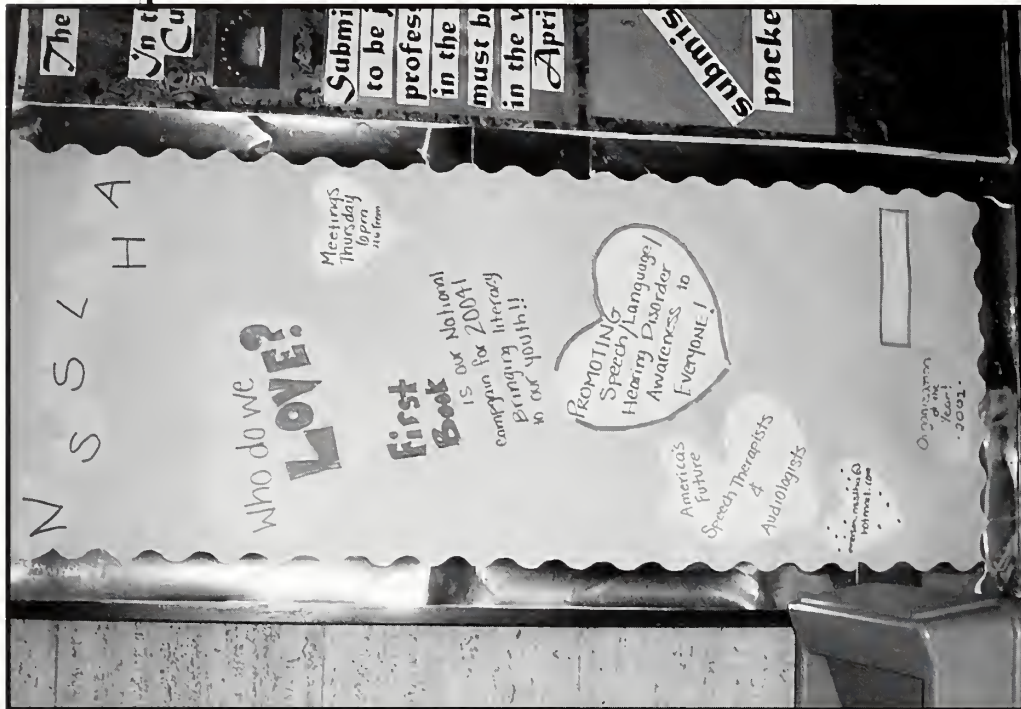 N S S L H A
Who do we
LOVE?
Meetings
Thursday
6pm
First
Book
is our National
campaign for 2004!
Bringing literacy
to our youth!!
PROMOTING
Speech/Language/
Hearing Disorder
Awareness to
EVERYONE!
America's
Future
Speech Therapists
&
Audiologists
hotmail.com
Organization
of the
Year!
2002
The
In t
Cu
Submi
to be
profess
in the
must b
in the
Apri
submis
packe